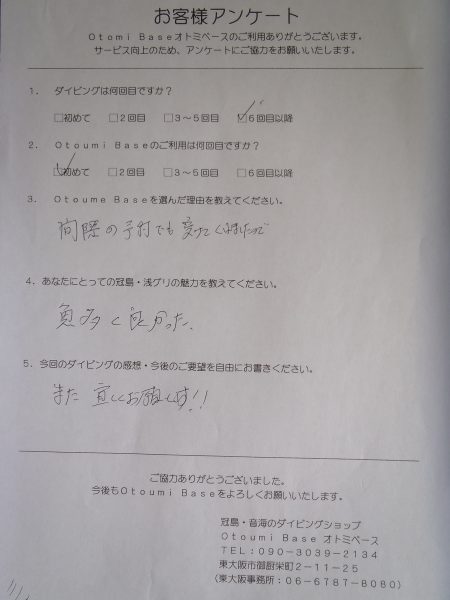 お客様アンケート
Ｏｔｏｍｉ Ｂａｓｅオトミベースのご利用ありがとうございます。
サービス向上のため、アンケートにご協力をお願いいたします。
１． ダイビングは何回目ですか？
□初めて □２回目 □３〜５回目 ☑６回目以降
２． Ｏｔｏｕｍｉ Ｂａｓｅのご利用は何回目ですか？
☑初めて □２回目 □３〜５回目 □６回目以降
３． Ｏｔｏｕｍｅ Ｂａｓｅを選んだ理由を教えてください。
間際の予約でも受けてくれましたので
４．あなたにとっての冠島・浅グリの魅力を教えてください。
魚多く良かった。
５．今回のダイビングの感想・今後のご要望を自由にお書きください。
また宜しくお願いします!!
ご協力ありがとうございました。
今後もＯｔｏｕｍｉ Ｂａｓｅをよろしくお願いいたします。
冠島・音海のダイビングショップ
Ｏｔｏｕｍｉ Ｂａｓｅ オトミベース
ＴＥＬ：０９０−３０３９−２１３４
東大阪市御厨栄町２−１１−２５
（東大阪事務所：０６−６７８７−８０８０）